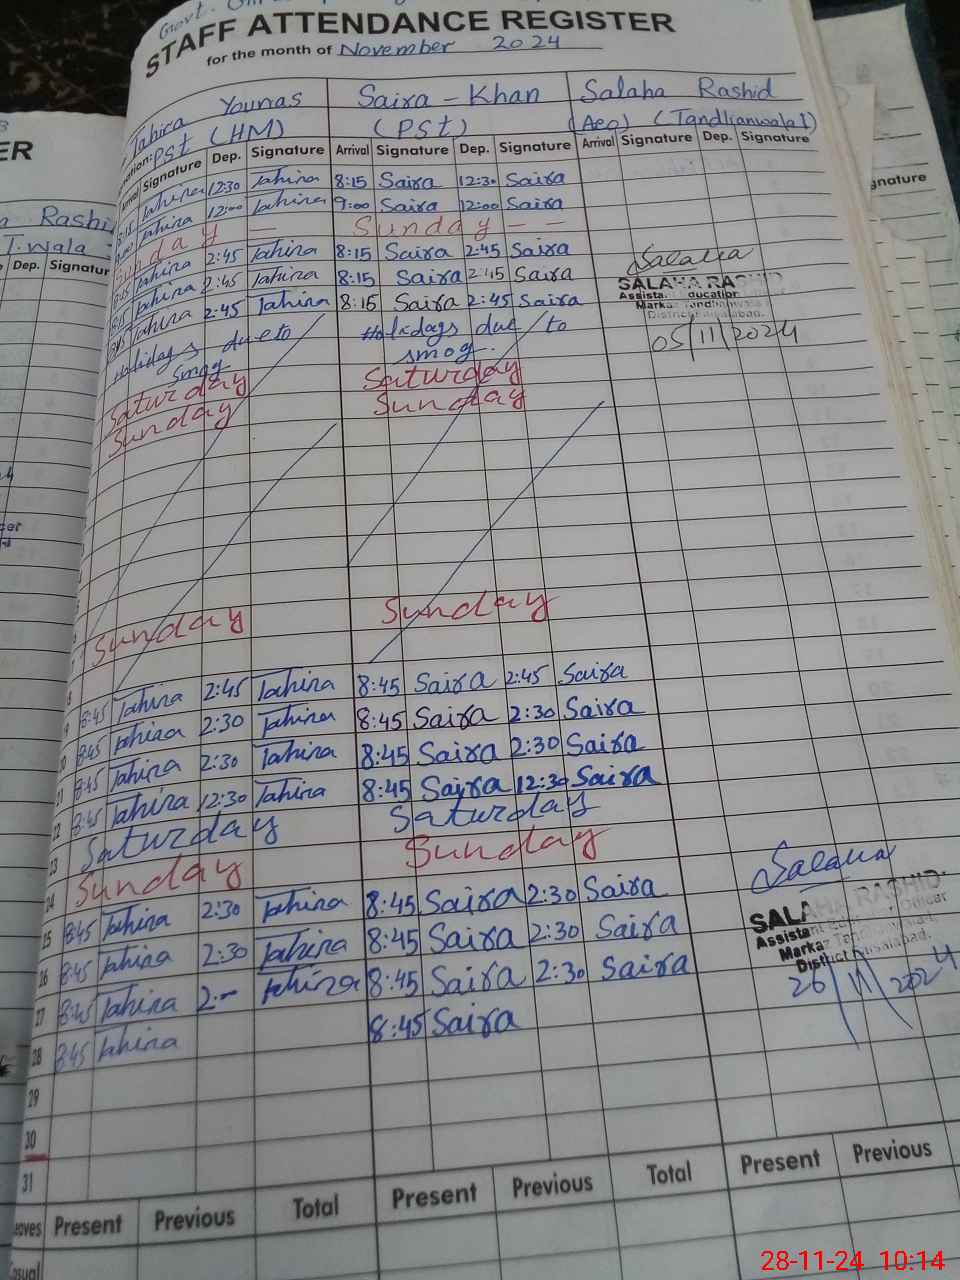 Govt.
STAFF ATTENDANCE REGISTER
for the month of November 2024
Tahira Younas Saira - Khan Salaha Rashid
PSt (HM) (PSt) (Aeo) (Tandlianwala I)
Signature Dep. Signature Arrival Signature Dep. Signature Arrival Signature Dep. Signature
8:15 Tahira 12:30 Tahira 8:15 Saira 12:30 Saira
9:00 Tahira 12:00 Tahira 9:00 Saira 12:00 Saira
Sunday — Sunday - -
8:15 Tahira 2:45 Tahira 8:15 Saira 2:45 Saira
8:15 Tahira 2:45 Tahira 8:15 Saira 2:45 Saira
8:15 Tahira 2:45 Tahira 8:15 Saira 2:45 Saira
Holidays due to Holidays due to
smog smog.
Saturday Saturday
Sunday Sunday
Sunday Sunday
8:45 Tahira 2:45 Tahira 8:45 Saira 2:45 Saira
8:45 Tahira 2:30 Tahira 8:45 Saira 2:30 Saira
8:45 Tahira 2:30 Tahira 8:45 Saira 2:30 Saira
21 8:45 Tahira 12:30 Tahira 8:45 Saira 12:30 Saira
22 Saturday Saturday
23 Sunday Sunday
24
25 8:45 Tahira 2:30 Tahira 8:45 Saira 2:30 Saira
26 8:45 Tahira 2:30 Tahira 8:45 Saira 2:30 Saira
27 8:45 Tahira 2:— Tahira 8:45 Saira 2:30 Saira
28 8:45 Tahira 8:45 Saira
29
30
31
Present Previous Total Present Previous Total Present Previous
Salaha
SALAHA RASHID
Markaz Tandlianwala I
District Faisalabad.
05/11/2024
Salaha
SALAHA RASHID
Assistant Education Officer
Markaz Tandlianwala-I,
District Faisalabad.
26/11/2024
ER
Rashid
T.wala
Dep. Signatur
gnature
28-11-24 10:14